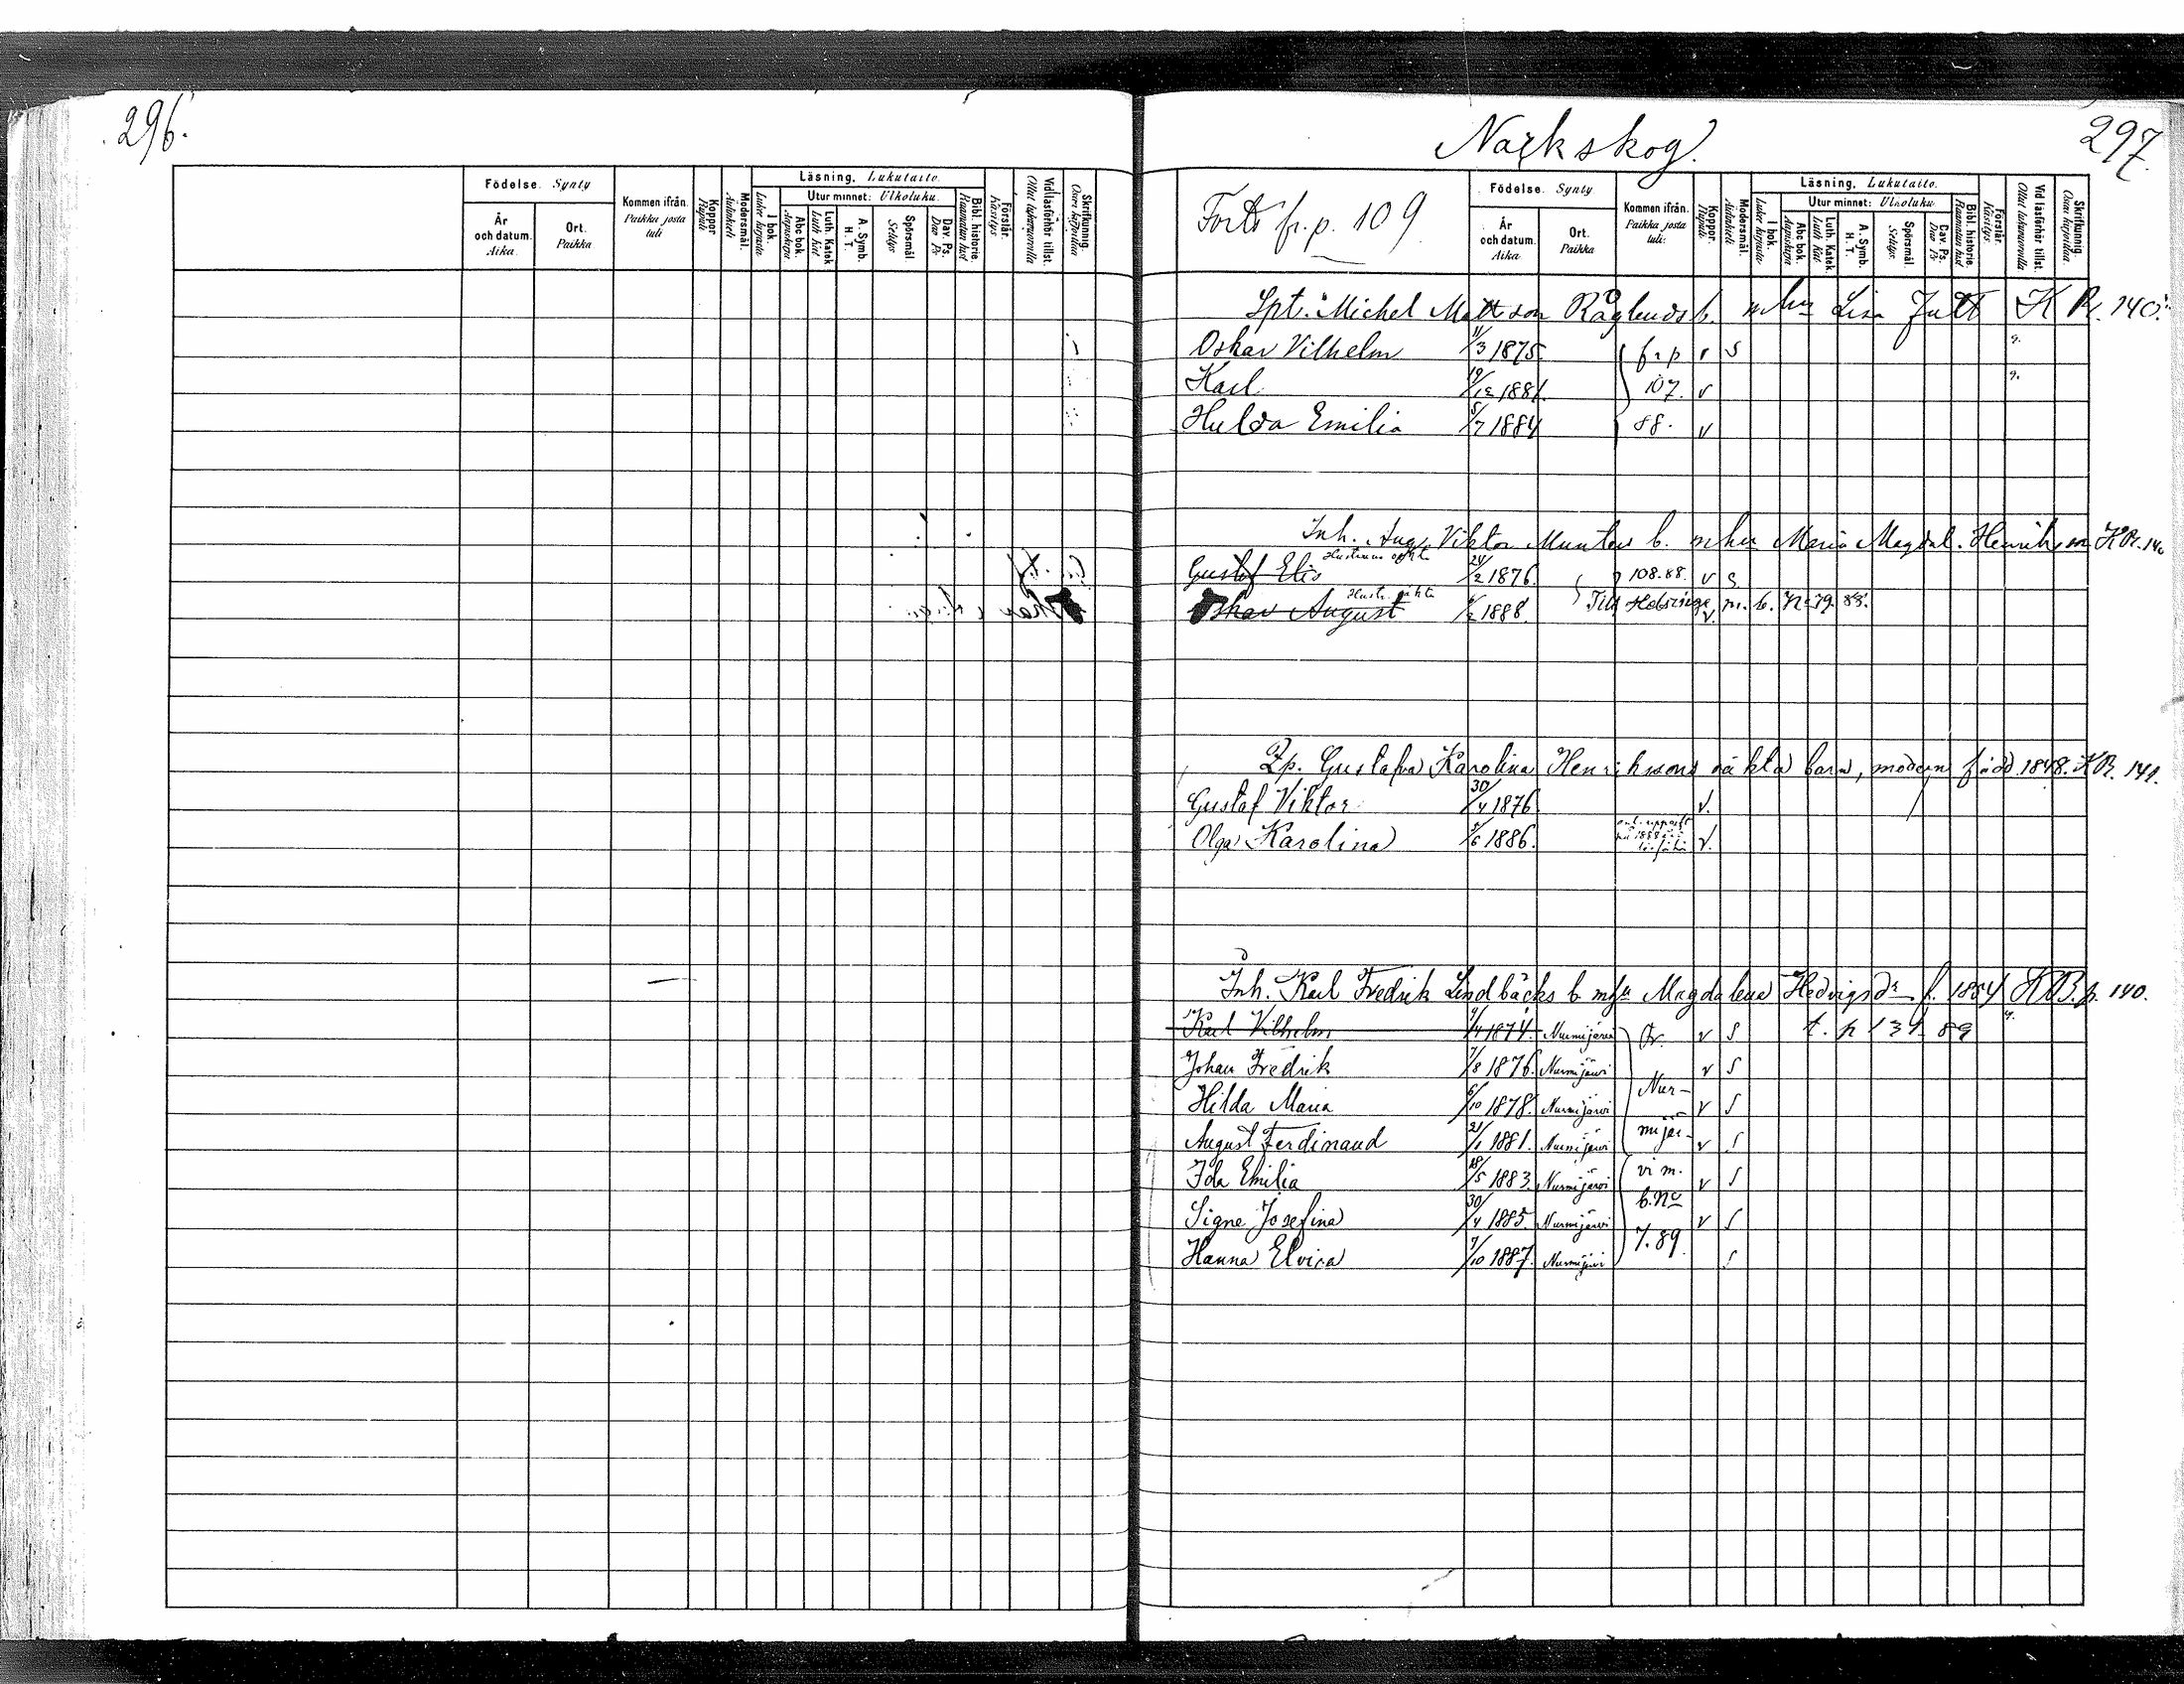 296.
Födelse. Synty
År och datum. Aika.
Ort. Paikka
Kommen ifrån. Paikka josta tuli
Koppor Rupuli
Modersmål. Äidinkieli
Läsning, Lukutaito.
I bok. Lukee kirjasta
Utur minnet: Ulkoluku.
Abc bok. Aapiskirja
Luth. Katek. Luth. Kat.
A. Symb. H. T.
Spörsmål Selitys
Dav. Ps. Dav. Ps.
Bibl. historie. Raamatun hist.
Förstår. Käsitys.
Vid läsförhör tillst. Ollut lukuvuorolla
Skrifkunnig. Osaa kirjoittaa
Narkskog.
297.
Forts fr. p. 109
Födelse. Synty
År och datum. Aika.
Ort. Paikka
Kommen ifrån. Paikka josta tuli:
Koppor. Rupuli
Modersmål. Äidinkieli
Läsning, Lukutaito.
I bok. Lukee kirjasta
Utur minnet: Ulkoluku.
Abc bok. Aapiskirja
Luth. Katek. Luth. Kat.
A. Symb. H. T.
Spörsmål Selitys.
Dav. Ps. Dav. Ps.
Bibl. historie. Raamatun hist.
Förstår. Käsitys.
Vid läsförhör tillst. Ollut lukuvuorolla
Skrifkunnig. Osaa kirjoittaa.
Spt. Michel Mattson b. m hu Lisa K B. 140.
Oskar Vilhelm 11/3 1875 fr p v s
Karl 19/12 1881. 107. v
Hulda Emilia 5/7 1884 88. v
Inh. Aug. Viktor b. m hu Maria Magdal. Henriksson K B. 140
Gustaf Elis 24/2 1876. 108.88. v s
Oskar August /2 1888. Till m. b. N 39. 88.
Gustafva Karolina Henrikssons oäkta barn, modern född 1848. K B. 141.
Gustaf Viktor 30/4 1876 v.
Olga Karolina 5/6 1886. v.
Inh. Karl Fredrik Lindbäcks b. m hu Magdalena Hedvigsdr f. 1854 K B. p. 140.
Karl Vilhelm 9/4 1874. Nurmijärvi fr. v s t. p 131 89
Johan Fredrik 7/8 1876. Nurmijärvi v s
Hilda Maria 6/10 1878. Nurmijärvi Nur- v s
August Ferdinand 21/1 1881. Nurmijärvi mijär- v s
Ida Emilia 18/5 1883. Nurmijärvi vi m. v s
Signe Josefina 30/4 1885. Nurmijärvi b. No v s
Hanna Elvira 7/10 1887. Nurmijärvi 7. 89 s